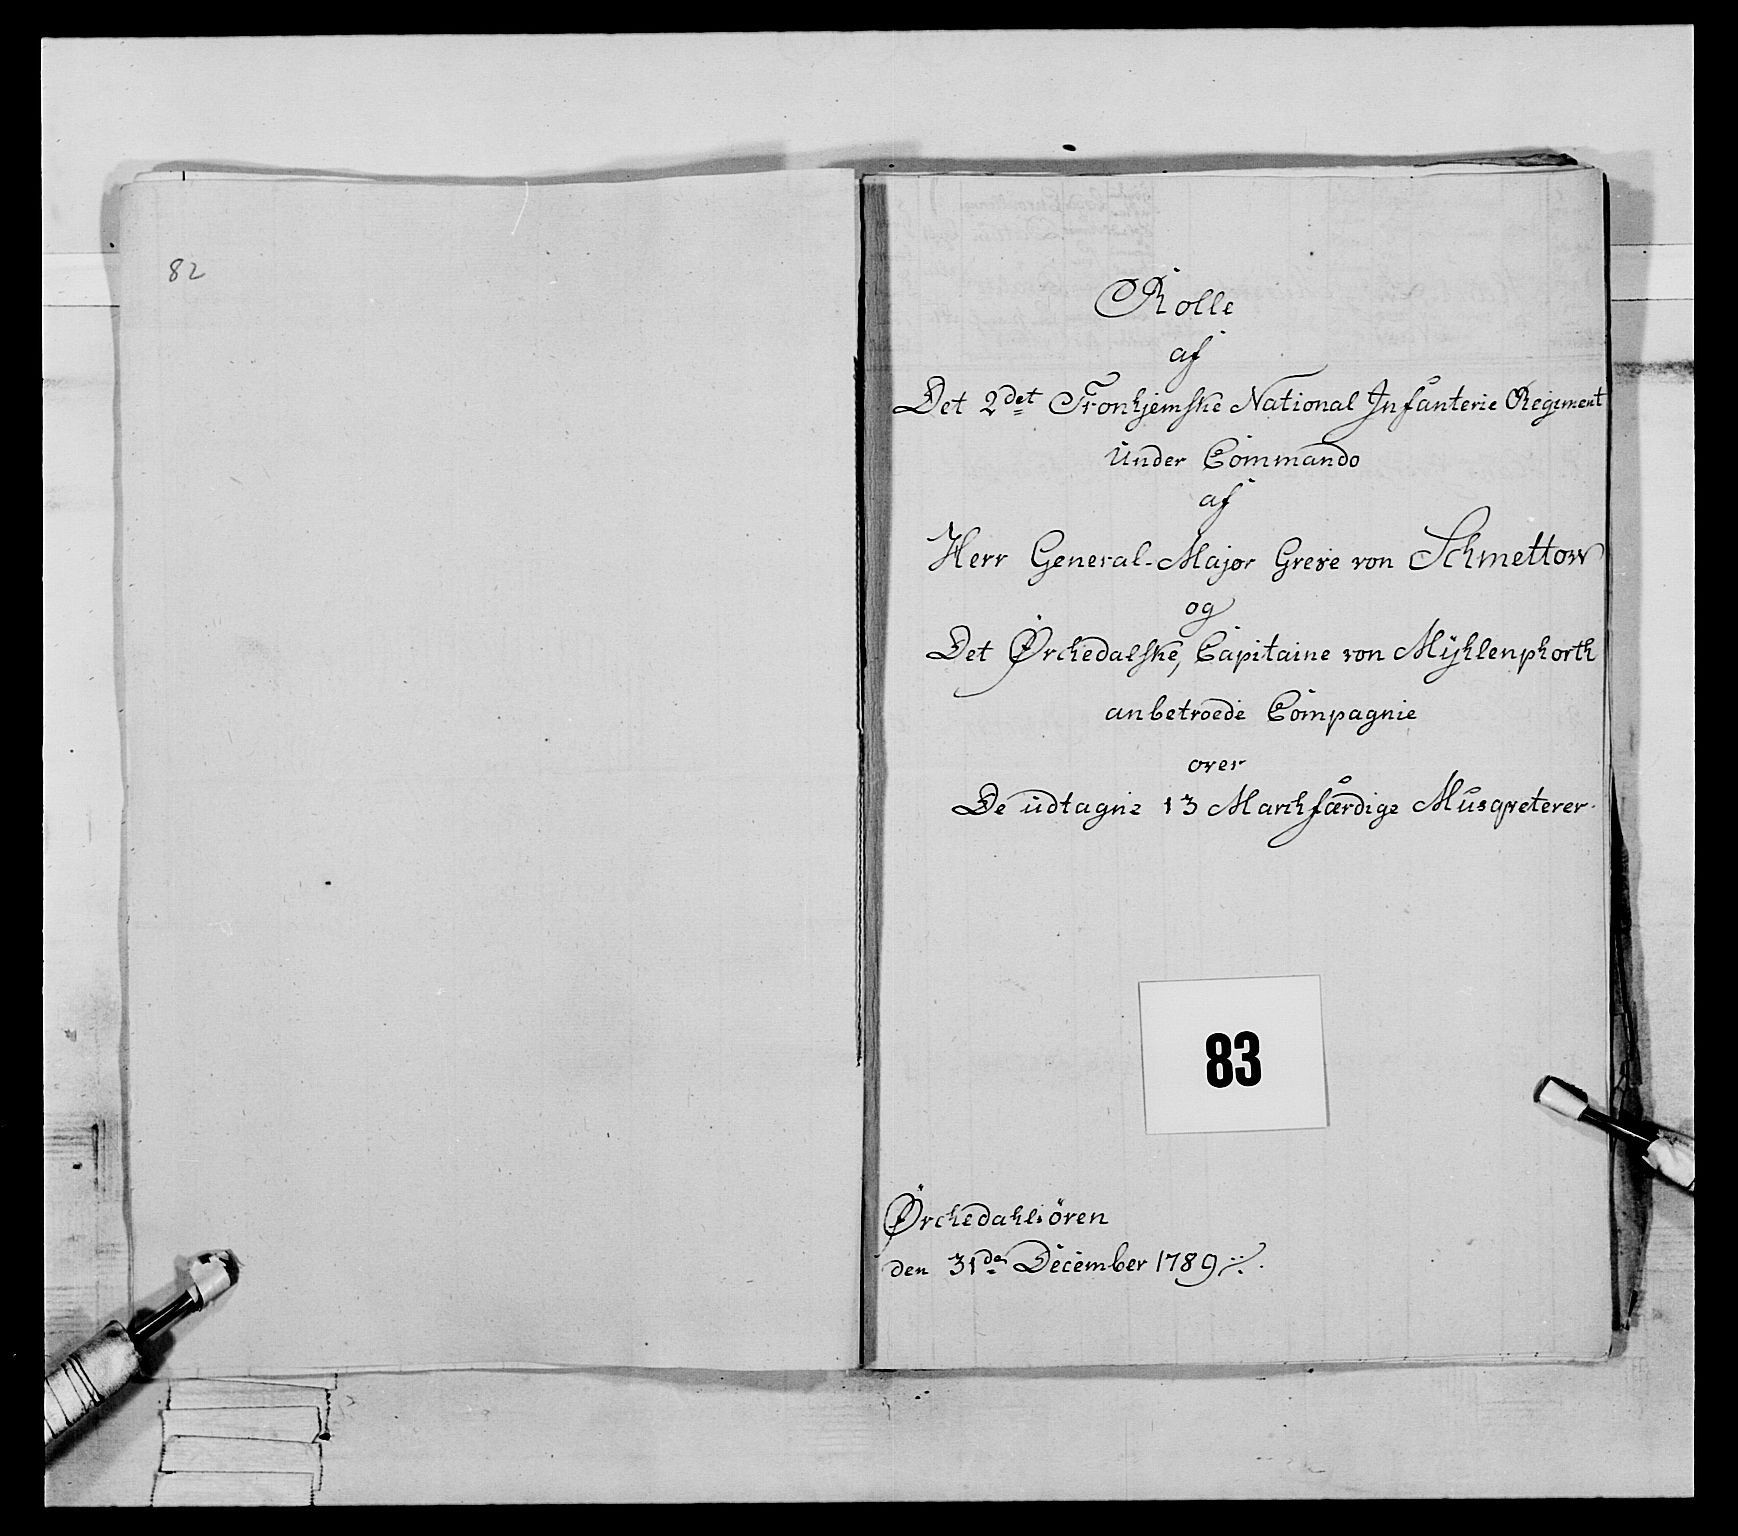 82
Rolle
af
Det 2det Tronhjemske National Infanterie Regiment
Under Commando
af
Herr General-Major Greve von Schmettow
og
Det Örchedalske, Capitaine von Mÿhlenphorth
anbetroede Compagnie
over
De udtagne 13 Marchfærdige Musqveterer.
83
Örchedahlsören
den 31de December 1789